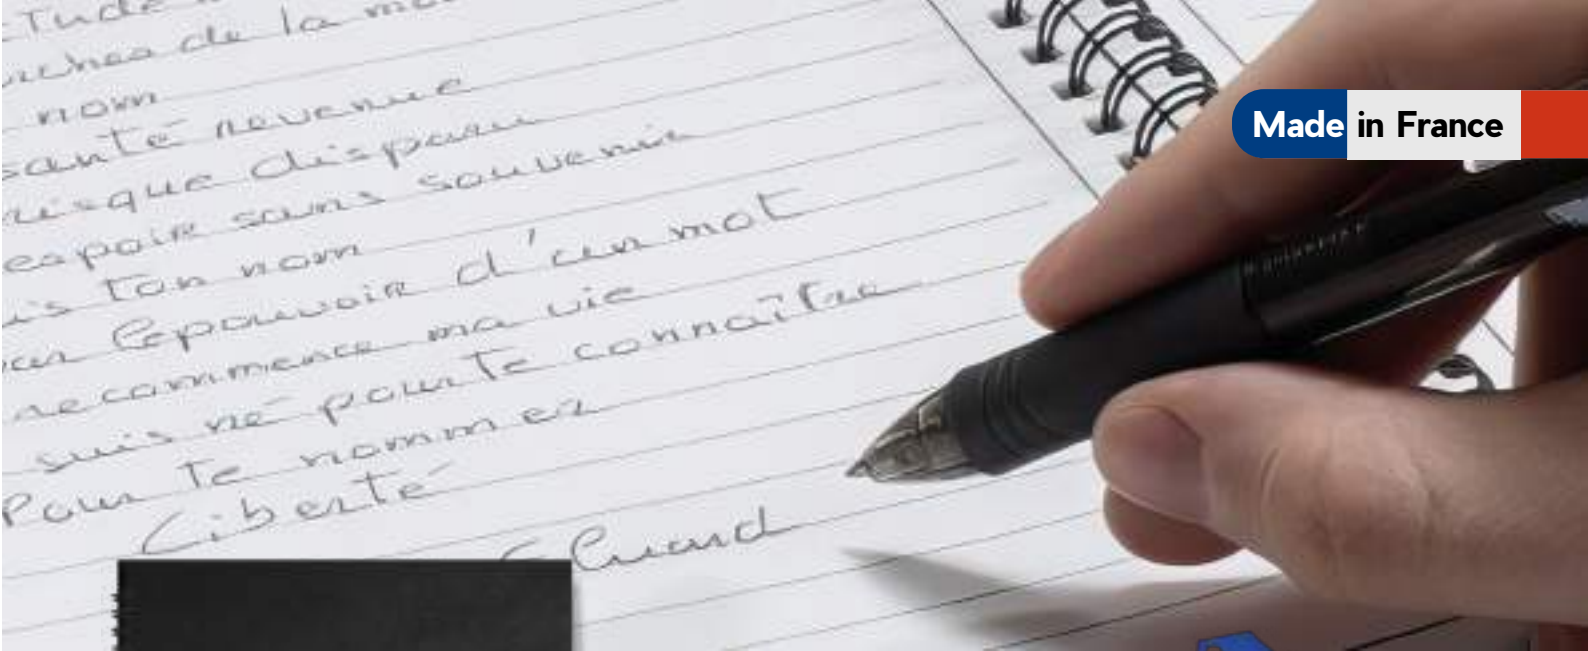 de la
nom
santé revenue
risque disparu
espoir sans souvenir
ton nom
le pouvoir d'un mot
recommence ma vie
suis né pour te connaître
Pour te nommer
Liberté
Eluard
Made in France